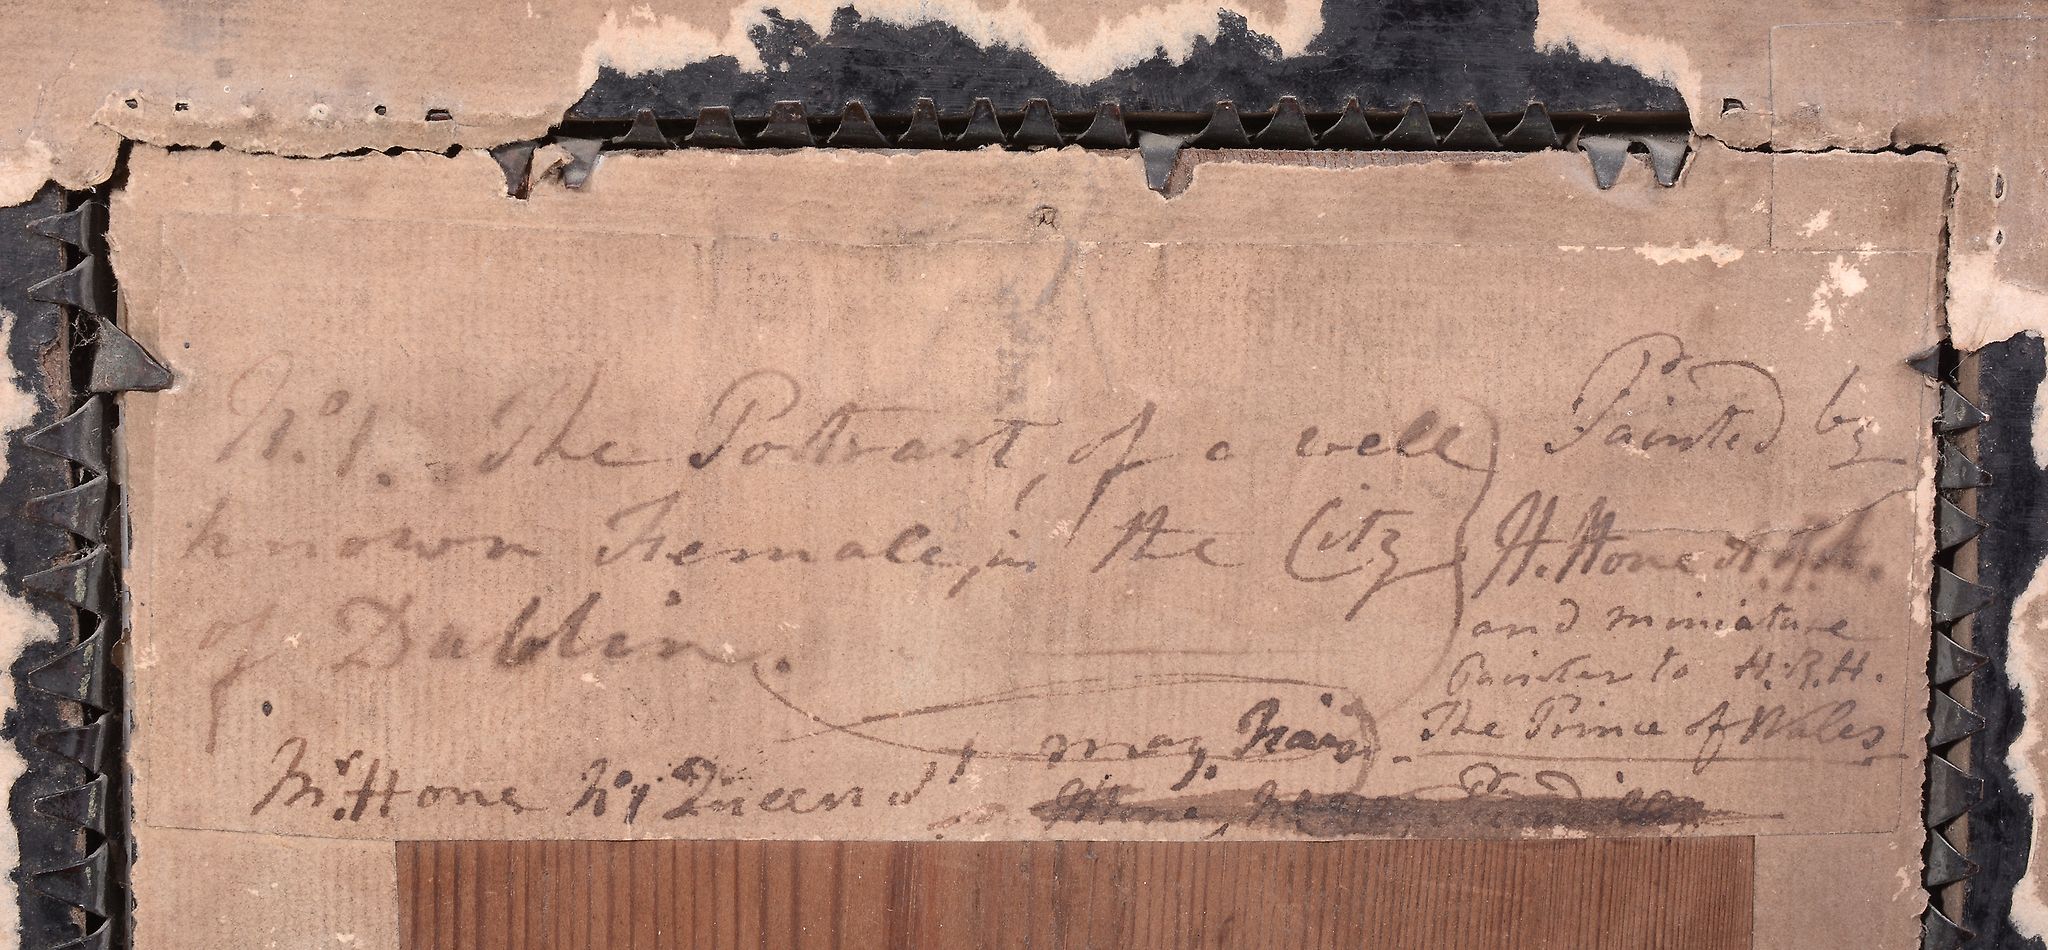 No. 1. The Portrait, of a well
known Female, in the City
of Dublin.
Painted by
H. Hone A.R.A.
and miniature
Painter to H.R.H.
The Prince of Wales
Mr. Hone No. 1 Queen St. may Fair